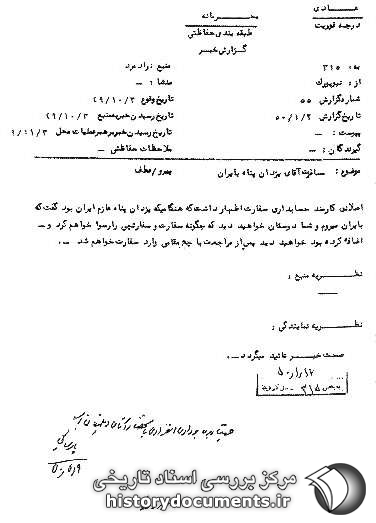 عـــادی
درجه فوریت
محـرمانه
طبقه بندی حفاظتی
گزارش خبر
به: ۳۱۵
منبع نراد مرد
از: نیویورک
منشا: ــ
شماره گزارش ۵۵
تاریخ وقوع ۴۹/۱۰/۳
تاریخ گزارش ۵۰/۱/۲
تاریخ رسیدن خبر به منبع ۴۹/۱۰/۳
پیوست: ــ
تاریخ رسیدن خبر به رهبر عملیات محل
گیرندگان: ــ
ملاحظات حفاظتی ــ
موضوع: مسافرت آقای یزدان پناه بایران
پیرو/عطف
اصلانی کارمند حسابداری سفارت اظهار داشت که هنگامیکه یزدان پناه عازم ایران بود گفت که
بایران میروم و شما دوستان خواهید دید که چگونه سفارت و سفارتچی را رسوا خواهم کرد و ــ
اضافه کرده بود خواهید دید پس از مراجعت با چه مقامی وارد سفارت خواهم شد ــ
نظـــریه منبع:
نظـــریه نمایندگی:
صحت خبـــر تائید میگردد
۵۰/۱/۱۲
بخش ۳۱۵
مرکز بررسی اسناد تاریخی
historydocuments.ir